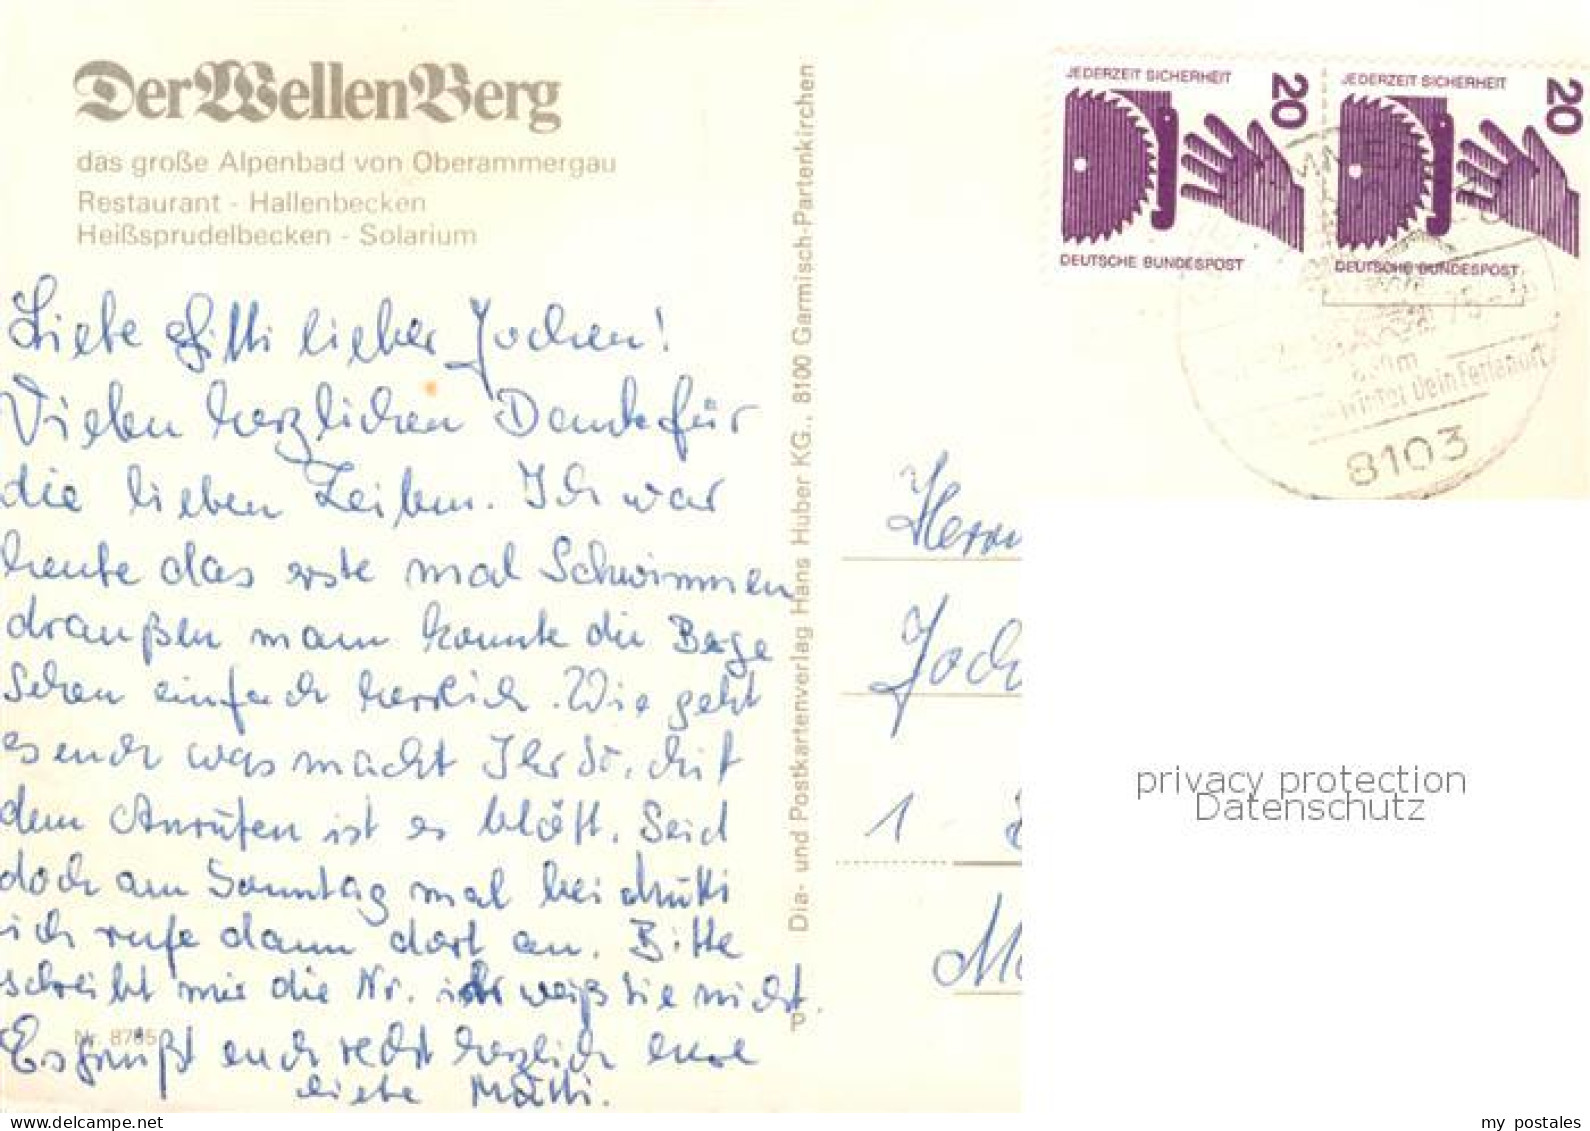 Der WellenBerg
das große Alpenbad von Oberammergau
Restaurant - Hallenbecken
Heißsprudelbecken - Solarium
Liebe Gitti lieber Jochen!
Vielen herzlichen Dank für
die lieben Zeilen. Ich war
heute das erste mal Schwimmen
draußen man konnte die Berge
sehen einfach herrlich. Wie geht
es euch was macht Ihr So. Mit
dem Anrufen ist es blöth. Seid
doch am Sonntag mal bei Mutti
ich rufe dann dort an. Bitte
schreibt mir die Nr. ich weiß sie nicht.
Es grüßt euch recht herzlich eure
liebe Mutti.
Nr. 8785
Dia- und Postkartenverlag Hans Huber KG., 8100 Garmisch-Partenkirchen
P
JEDERZEIT SICHERHEIT
20
DEUTSCHE BUNDESPOST
JEDERZEIT SICHERHEIT
20
DEUTSCHE BUNDESPOST
Winter Dein Ferienort
8103
Herrn
Joch
1
M
privacy protection
Datenschutz
my postales
www.delcampe.net